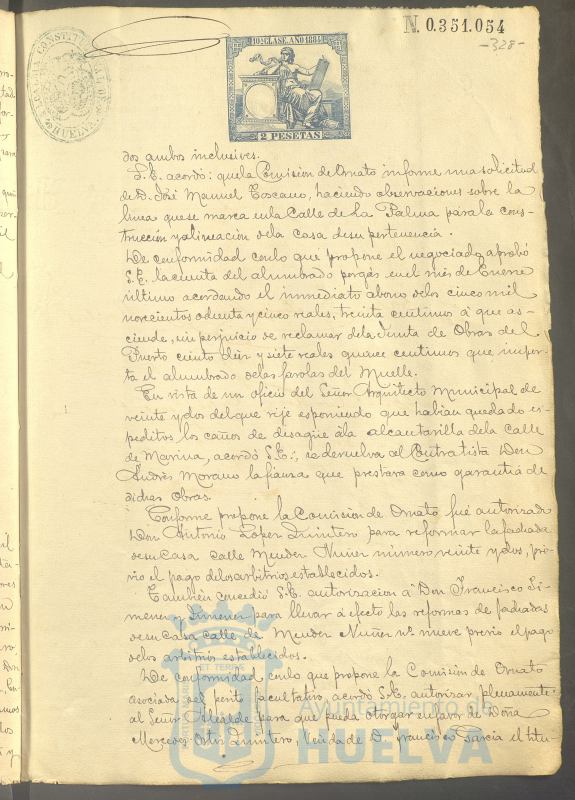 N. 0.351.054
-328-
10ª CLASE. AÑO 1884
2 PESETAS
HUELVA
dos ambos inclusives.
S.E. acordó: que la Comision de Ornato informe una solicitud
de D. José Manuel Toscano, haciendo observaciones sobre la
linea que se marca en la Calle de La Palma para la cons-
trucción y alineacion de la casa de su pertenencia.
De conformidad con lo que propone el negociado, aprobó
S.E. la cuenta del alumbrado por gas en el mes de Enero
último acordando el inmediato abono de los cinco mil
novecientos ochenta y cinco reales, treinta centimos á que as-
ciende, sin perjuicio de reclamar de la Junta de Obras del
Puerto ciento diez y siete reales quince centimos que impor-
ta el alumbrado de las farolas del Muelle.
En vista de un oficio del Señor Arquitecto Municipal de
veinte y dos del que rije esponiendo que habian quedado es-
peditos los caños de desagüe á la alcantarilla de la calle
de Marina, acordó S.E.: se devuelva al Contratista Don
Andrés Morano la fianza que prestara como garantia de
dichas obras.
Conforme propone la Comision de Ornato fué autorizado
Don Antonio Lopez Quintero para reformar la fachada
de su Casa calle Mendez Nuñez número veinte y dos, pré-
vio el pago de los arbitrios establecidos.
Tambien concedió S.E. autorizacion á Don Francisco Ji-
menez y Jimenez para llevar á efecto las reformas de fachadas
de su Casa calle de Mendez Nuñez nº nueve previo el pago
de los arbitrios establecidos.
De conformidad con lo que propone la Comisión de Ornato
asociada del perito facultativo, acordó S.E. autorizar plenamente
al Señor Alcalde para que pueda otorgar en favor de Doña
Mercedes Quintero, Viuda de D. Francisco Garcia el titu-
Ayuntamiento de
HUELVA